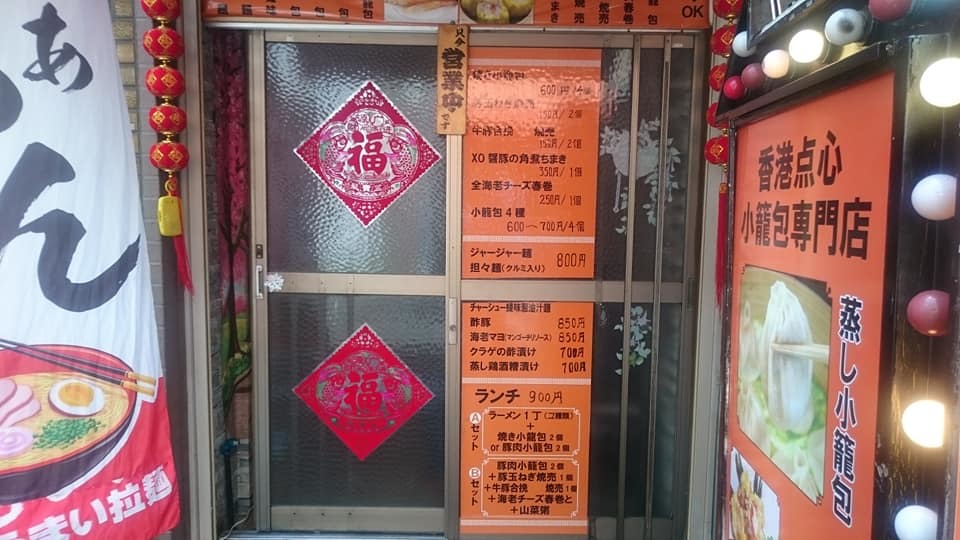 あ
ん
うまい拉麺
OK
只今
営業中
です
福
福
焼き小籠包
600円/4個
豚玉ねぎ焼売
150円/2個
牛豚合挽 焼売
150円/2個
XO醤豚の角煮ちまき
350円/1個
全海老チーズ春巻
250円/1個
小籠包4種
600〜700円/4個
ジャージャー麺
担々麺(クルミ入り)
800円
酢豚 850円
海老マヨ(マンゴーチリソース) 850円
クラゲの酢漬け 700円
蒸し鶏酒糟漬け 700円
ランチ 900円
Aセット
ラーメン1丁(2種類)
+
焼き小籠包2個
or豚肉小籠包2個
Bセット
豚肉小籠包2個
+豚玉ねぎ焼売1個
+牛豚合挽 焼売1個
+海老チーズ春巻と
+山菜粥
香港点心
小籠包専門店
蒸し小籠包